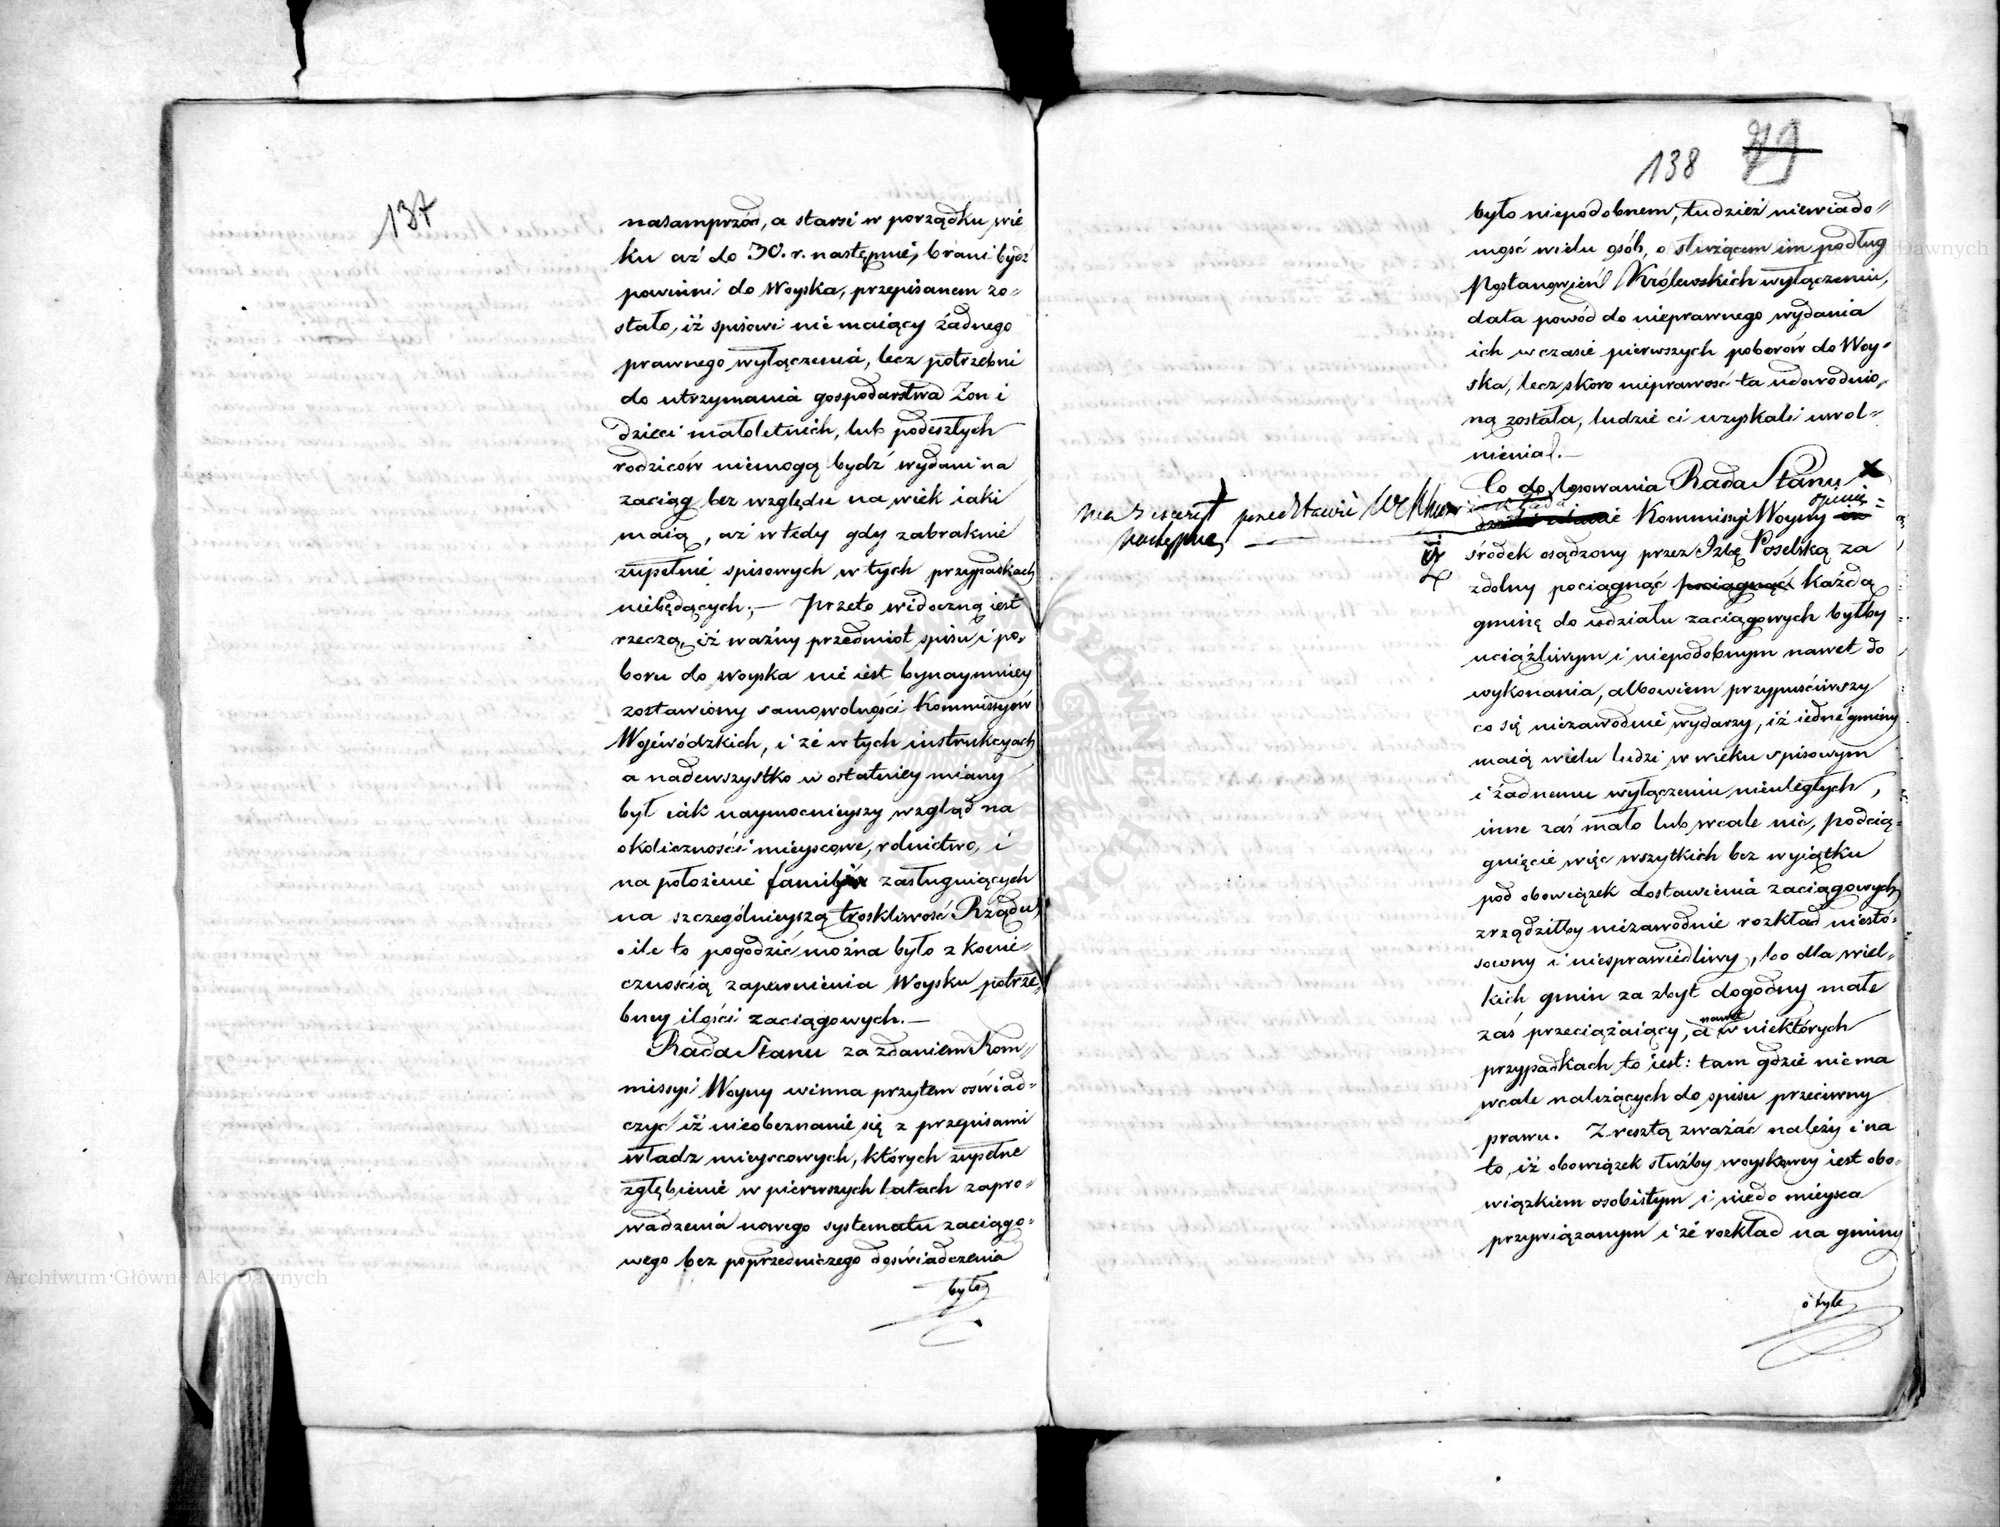 137
nasamprzód, a starsi w porządku wie
ku aż do 30. r. następnie, brani bydź
powinni do Woyska, przepisanem zo-
stało, iż spisowi nie maiący żadnego
prawnego wyłączenia, lecz potrzebni
do utrzymania gospodarstwa Żon i
dzieci małoletnich, lub podeszłych
rodziców niemogą bydź wydani na
zaciąg bez względu na wiek iaki
maią, aż wtedy gdy zabraknie
zupełnie spisowych w tych przypadkach
niebędących; — Przeto widoczną iest
rzeczą, iż ważny przedmiot spisu i po-
boru do woyska nie iest bynaymniey
zostawiony samowolności Kommissyów
Wojewódzkich, i że w tych instrukcyach
a nadewszystko w ostatniey miany
był iak naymocnieyszy wzgląd na
okoliczności mieyscowe, rolnictwo, i
na położenie familiów zasługuiących
na szczególnieyszą troskliwość Rządu
o ile to pogodzić można było z konie-
cznością zapewnienia Woysku potrze-
bney ilości zaciągowych. —
Rada Stanu za zdaniem Kom-
missyi Woyny winna przytem oświad-
czyć iż nieobeznanie się z przepisami
władz mieyscowych, których zupełne
zgłębienie w pierwszych latach zapro-
wadzenia nowego systematu zaciągo-
wego bez poprzedniczego doświadczenia
było
138 79
było niepodobnem, tudzież niewiado-
mość wielu osób, o służącem im podług
Postanowień Królewskich wyłączeniu,
dała powód do nieprawnego wydania
ich w czasie pierwszych poborów do Woy-
ska, lecz skoro nieprawość ta udowodnio-
ną została, ludzie ci uzyskali uwol-
nienia. —
Co do losowania Rada Stanu x
opinię
Kommissyi Woyny
przedstawić
następnie
iż
środek osądzony przez Izbę Poselską za
zdolny pociągnąć pociągnąć każdą
gminę do udziału zaciągowych byłby
uciążliwym i niepodobnym nawet do
wykonania, albowiem przypuściwszy
co się niezawodnie wydarzy, iż iedne gminy
maią wielu ludzi w wieku spisowym
i żadnemu wyłączeniu nieuległych,
inne zaś mało lub wcale nic, podcią-
gnięcie więc wszytkich bez wyiątku
pod obowiązek dostawienia zaciągowych
zrządziłby niezawodnie rozkład niesto-
sowny i niesprawiedliwy, bo dla wiel-
kich gmin za zbyt dogodny małe
zaś przeciążaiący, a nawet w niektórych
przypadkach to iest: tam gdzie niema
wcale należących do spisu przeciwny
prawu. Zresztą zważać należy i na
to, iż obowiązek służby woyskowey iest obo-
wiązkiem osobistym i niedo mieysca
przywiązanym i że rozkład na gminy
o tyle
Archiwum Główne Akt Dawnych